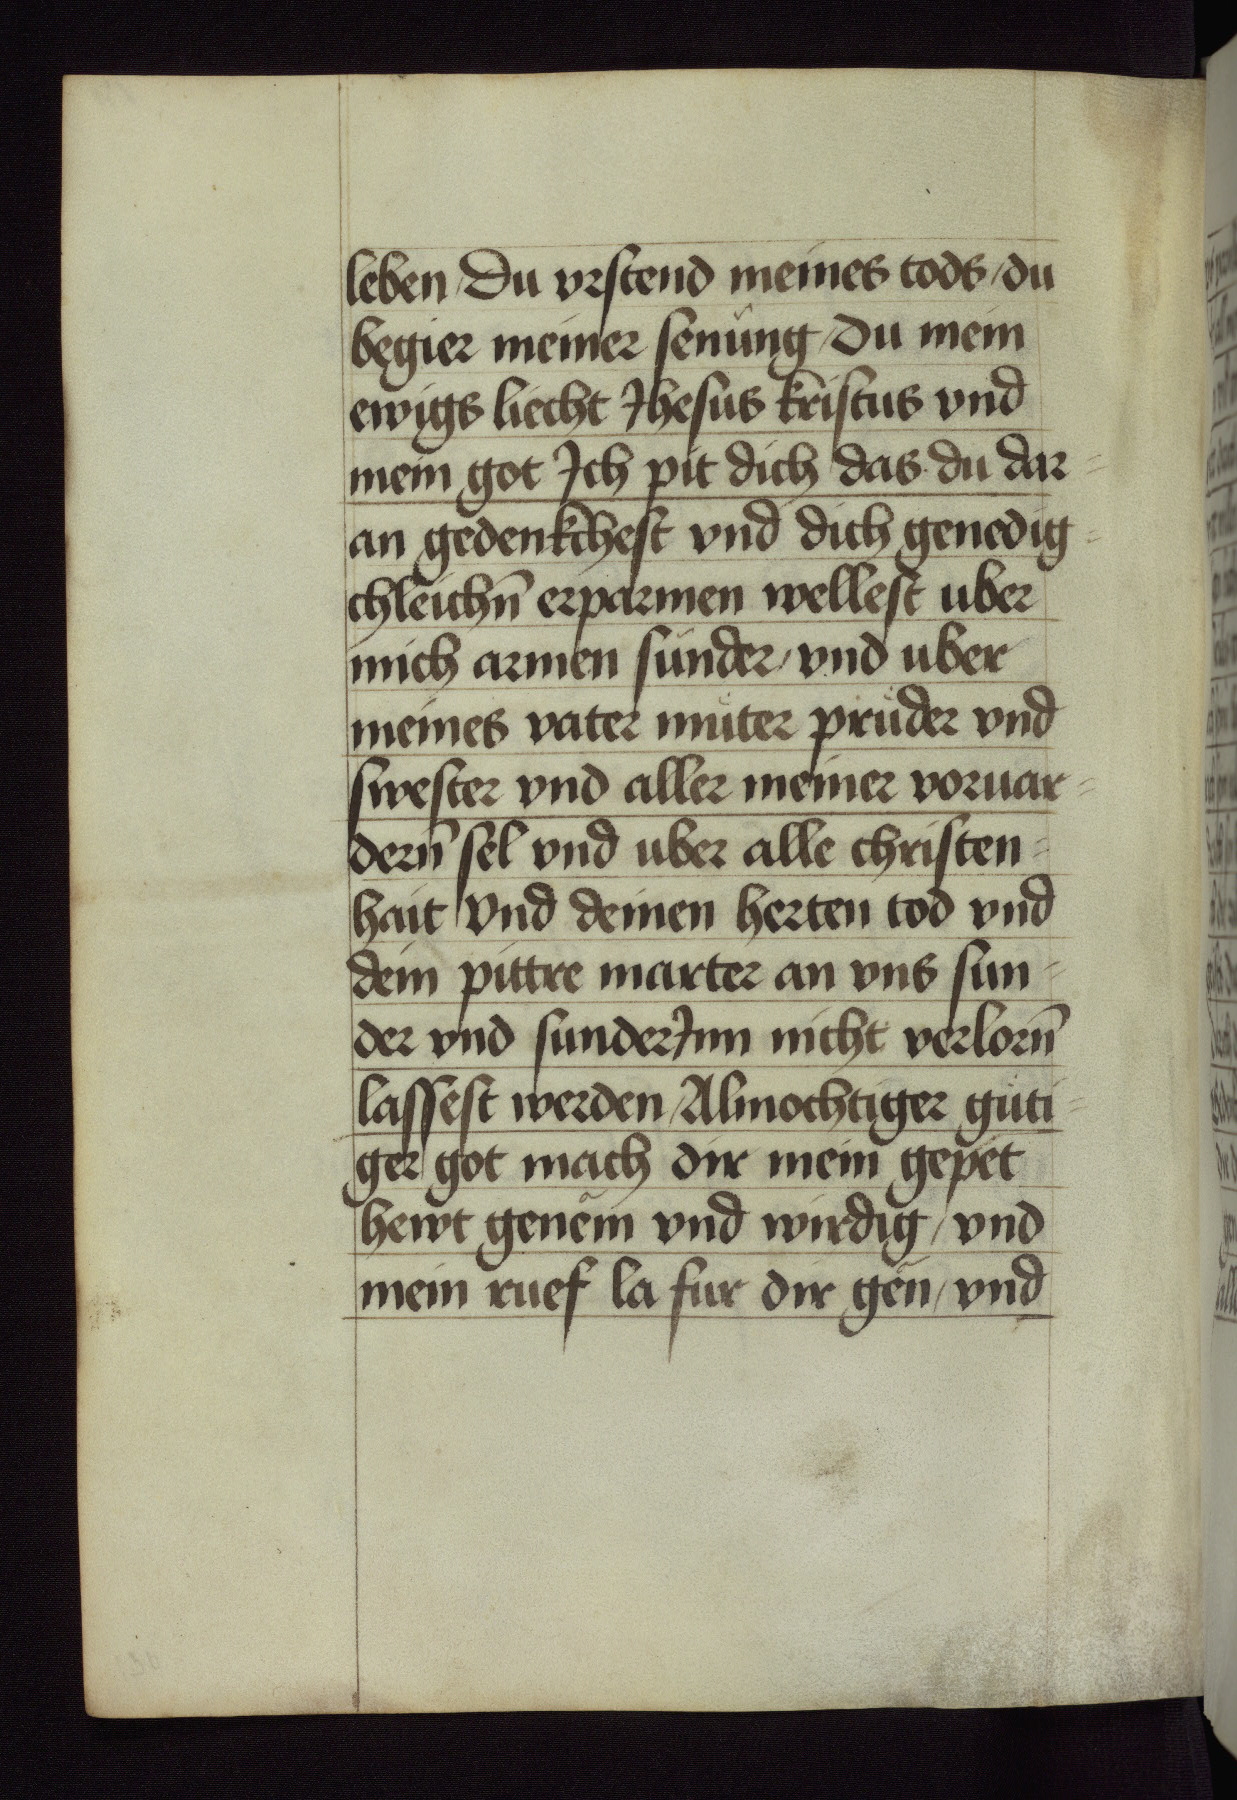 leben / Du vrstend meines tods / du
begier meiner senung / Du mein
ewigs liecht Jhesus kristus vnd
mein got Jch pit dich das du dar=
an gedenkchest vnd dich genedig=
chleichn̄ erparmen wellest uber
mich armen sunder / vnd uber
meines vater muͤter pruͤder vnd
swester vnd aller meiner voruar=
dern̄ sel vnd uber alle christen=
hait Vnd deinen herten tod vnd
dein pittre marter an vns sun=
der vnd sunderJnn nicht verlorn̄
lassest werden / Almochtiger guͤti=
ger got mach dir mein gepet
hewt genem vnd wirdig / vnd
mein ruef la fur dir gen / vnd